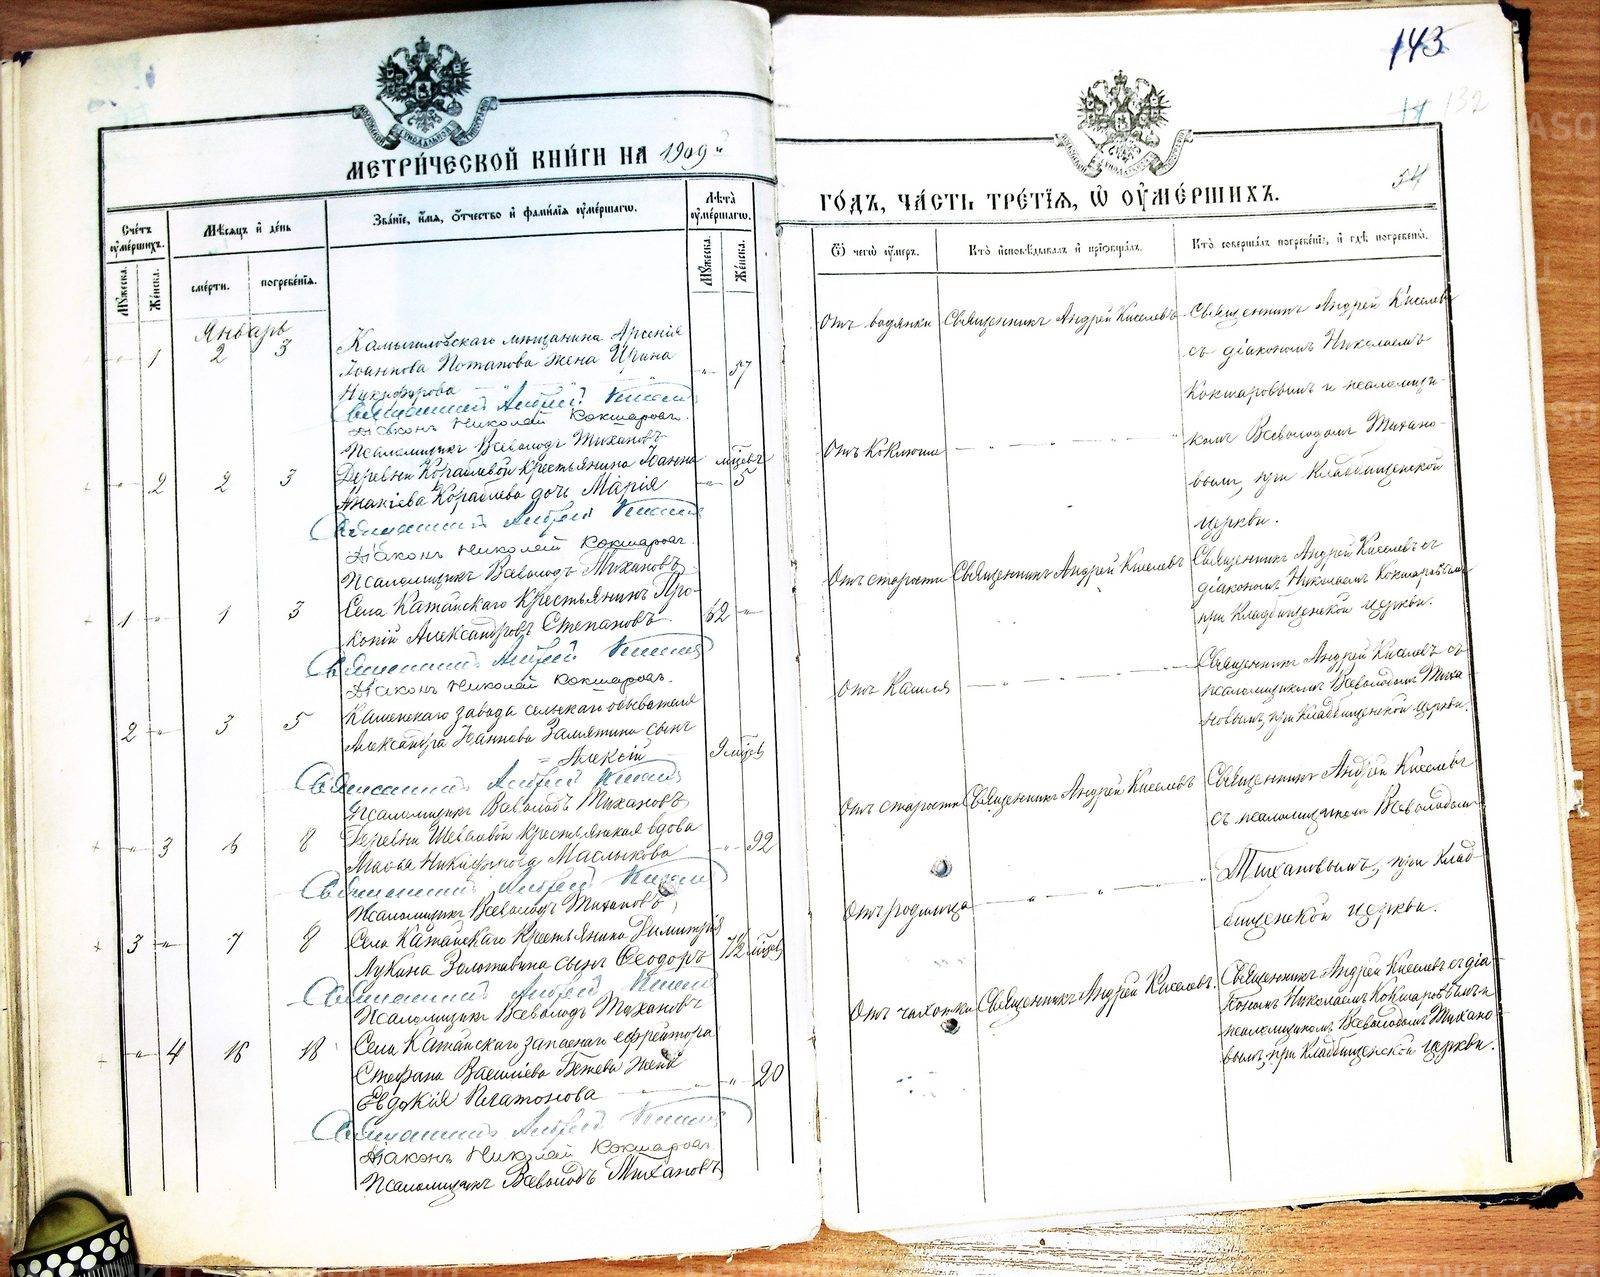 143
132
54
МЕТРИЧЕСКОЙ КНИГИ НА 1909й
ГОДЪ, ЧАСТЬ ТРЕТІЯ, Ѿ ОУМЕРШИХЪ.
Счетъ оумершихъ.
Мѣсяцъ и день
Званіе, имя, отчество и фамилія оумершагѡ.
Лѣта оумершагѡ.
Мужеска.
Женска.
смерти.
погребенія.
Мужеска.
Женска.
Ѿ чегѡ оумеръ.
Кто исповѣдывалъ и пріобщалъ.
Кто совершалъ погребеніе, и гдѣ погребены.
Январь
1 2 3
Камышловскаго мѣщанина Арсенія
Іоаннова Потапова жена Ирина
Никифорова 57
Священникъ Андрей
Діаконъ Николай Кокшаровъ.
Псаломщикъ Всеволодъ Тихановъ
2 2 3
Деревни Кораблевой крестьянина Іоанна
мѣсцевъ
Ананіева Кораблева дочь Марія 5
Священникъ Андрей
Діаконъ Николай Кокшаровъ.
Псаломщикъ Всеволодъ Тихановъ
1 1 3
Села Катайскаго крестьянинъ Про-
копій Александровъ Степановъ 62
Священникъ Андрей
Діаконъ Николай Кокшаровъ.
2 3 5
Каменскаго завода сельскаго обывателя
Александра Іоаннова Замятина сынъ
Алексій 9 мѣсцевъ
Священникъ Андрей
Псаломщикъ Всеволодъ Тихановъ
3 6 8
Деревни Шевелевой крестьянская вдова
Никифорова Маслыкова 92
Священникъ Андрей
Псаломщикъ Всеволодъ Тихановъ
3 7 8
Села Катайскаго крестьянина Димитрія
Лукина Золотавина сынъ Ѳеодоръ 7½ мѣсцевъ
Священникъ Андрей
Псаломщикъ Всеволодъ Тихановъ
4 16 18
Села Катайскаго запаснаго ефрейтора
Стефана Васильева жена
Евдокія Платонова 20
Священникъ Андрей
Діаконъ Николай Кокшаровъ
Псаломщикъ Всеволодъ Тихановъ
Отъ водянки
Священникъ Андрей Киселевъ
Священникъ Андрей Киселевъ
съ діакономъ Николаемъ
Кокшаровымъ и псаломщи-
комъ Всеволодомъ Тихано-
вымъ, при Кладбищенской
церкви.
Отъ коклюша
Отъ старости
Священникъ Андрей Киселевъ
Священникъ Андрей Киселевъ съ
діакономъ Николаемъ Кокшаровымъ
при Кладбищенской церкви.
Отъ кашля
Священникъ Андрей Киселевъ съ
псаломщикомъ Всеволодомъ Тиха-
новымъ, при Кладбищенской церкви.
Отъ старости
Священникъ Андрей Киселевъ
Священникъ Андрей Киселевъ
съ псаломщикомъ Всеволодомъ
Тихановымъ, при Клад-
бищенской церкви.
Отъ родимца
Отъ чахотки
Священникъ Андрей Киселевъ.
Священникъ Андрей Киселевъ съ діа-
кономъ Николаемъ Кокшаровымъ и
псаломщикомъ Всеволодомъ Тихано-
вымъ, при Кладбищенской церкви.